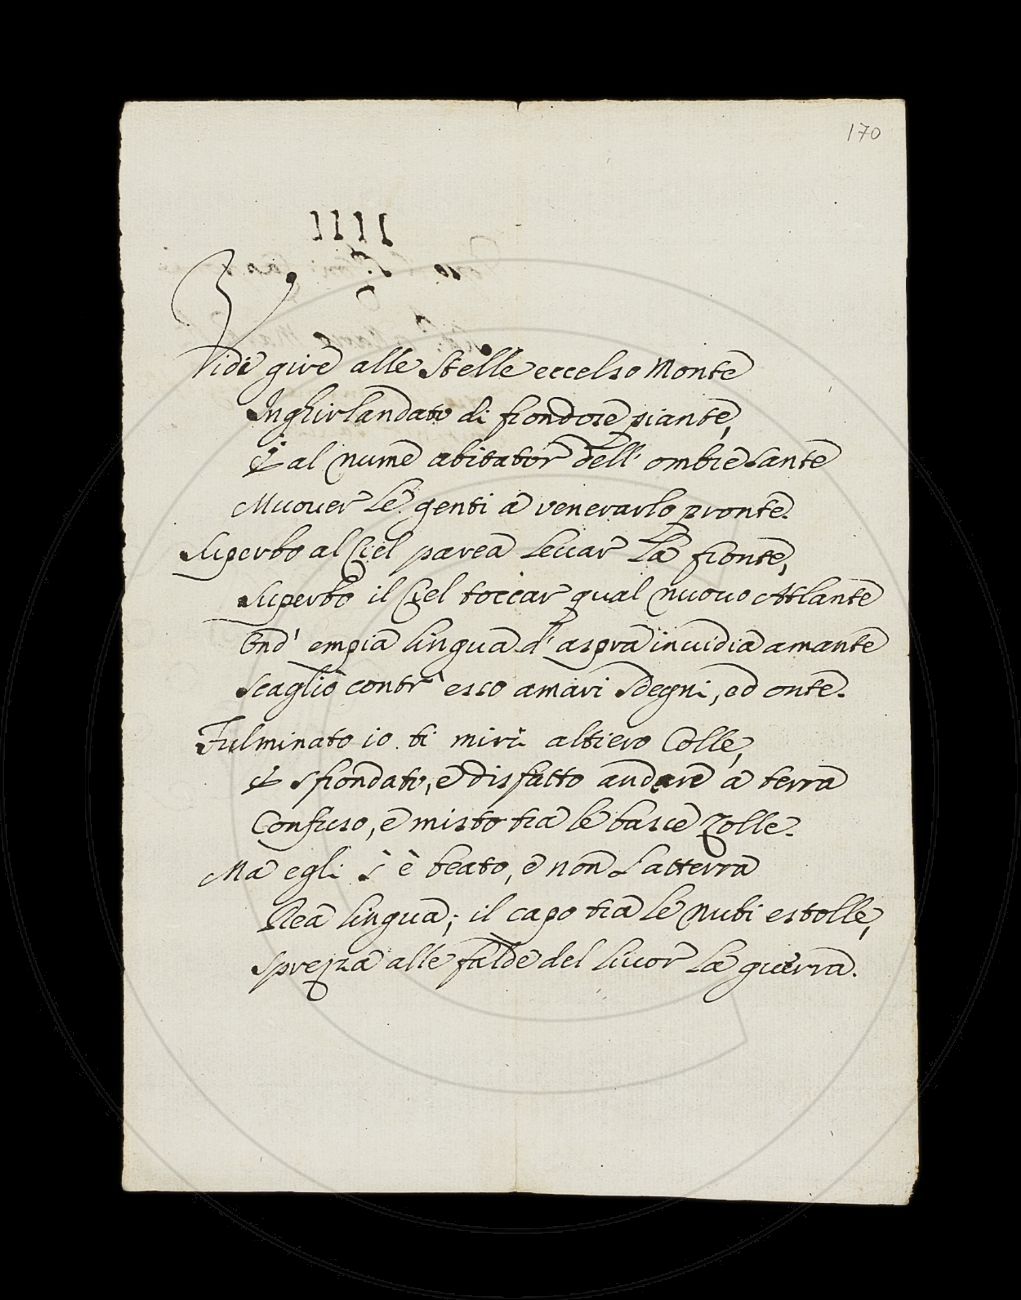 170
IIII
Vidi gire alle Stelle eccelso Monte
Inghirlandato di frondose piante,
E al nume abitator dell' ombre sante
Muover le genti a venerarlo pronte.
Superbo al Ciel parea levar la fronte,
Superbo il Ciel toccar qual nuovo Atlante
Ond' empia lingua d' aspra invidia amante
Scagliò contr' esso amari sdegni, ed onte.
Fulminato io ti miri altiero Colle,
E sfrondato, e disfatto andare a terra
Confuso, e misto tra le basse Zolle.
Ma egli s' è beato, e non l'atterra
Rea lingua; il capo tra le nubi estolle,
Sprezza alle falde del livor la guerra.